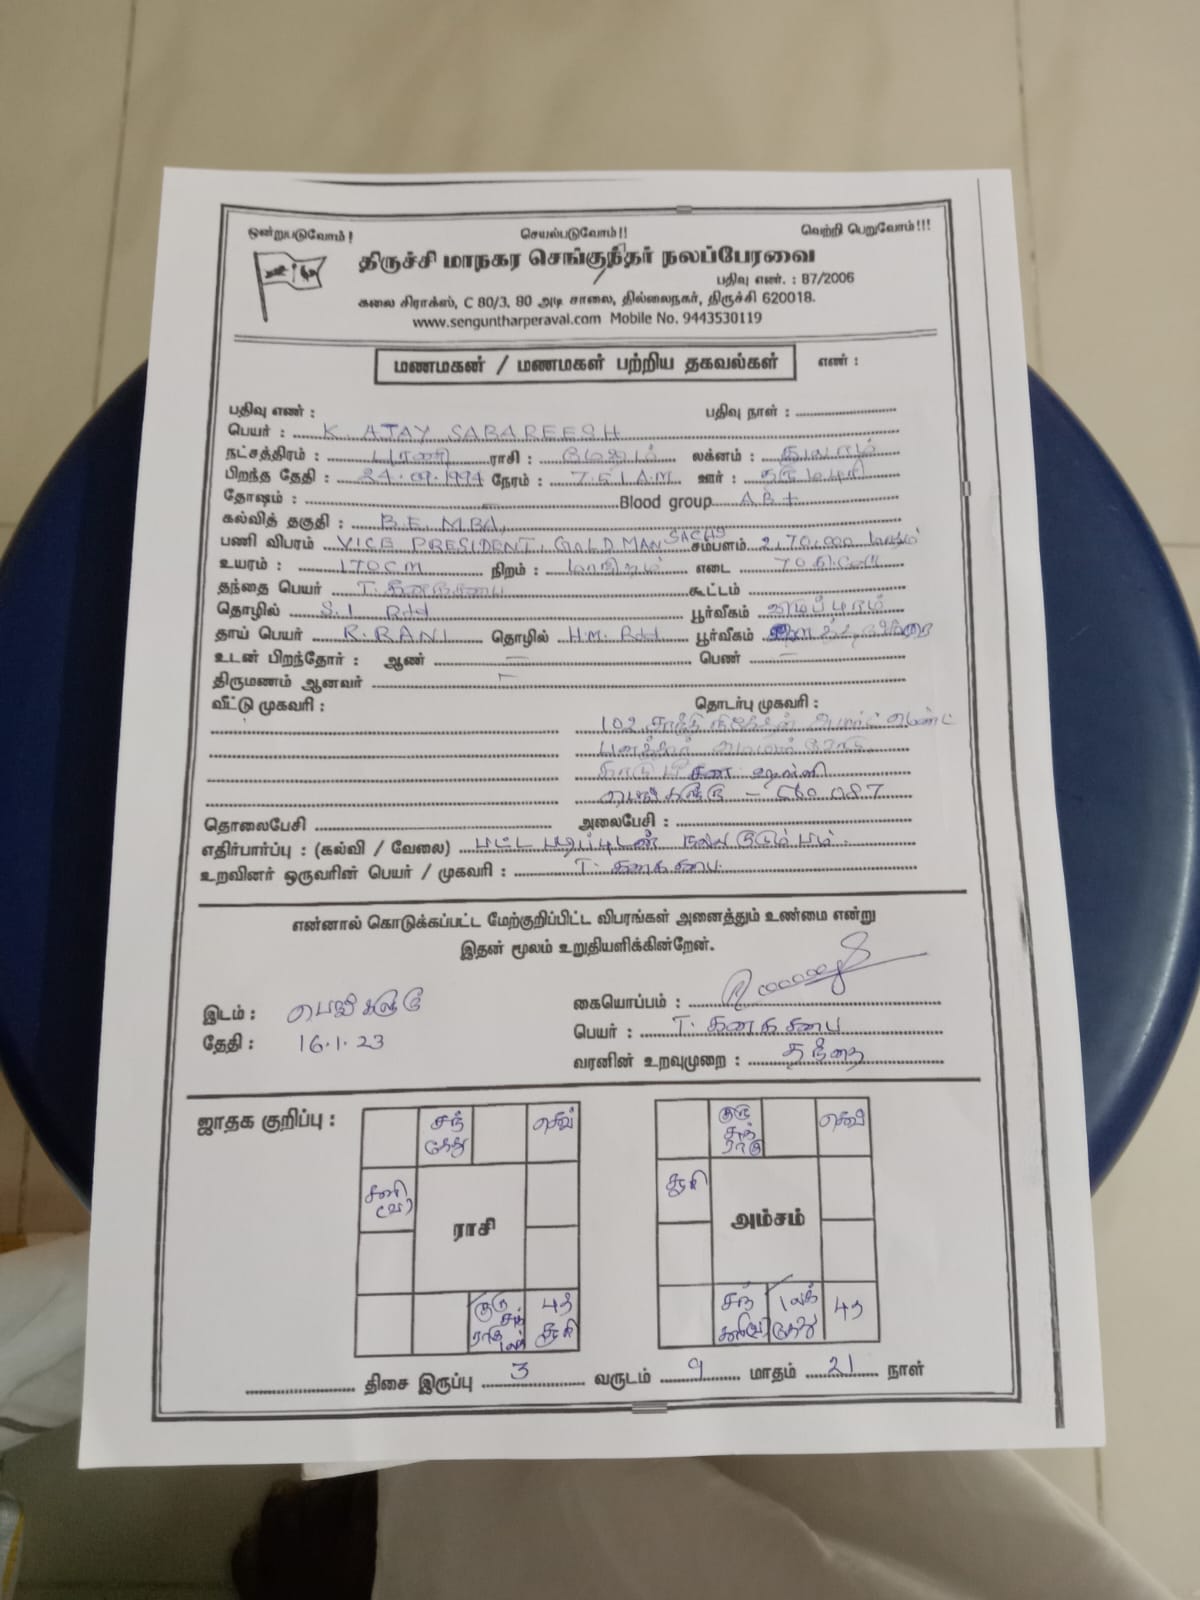 ஒன்றுபடுவோம் ! செயல்படுவோம் !! வெற்றி பெறுவோம் !!!
திருச்சி மாநகர செங்குந்தர் நலப்பேரவை
பதிவு எண். : 87/2006
கலை சிராக்ஸ், C 80/3, 80 அடி சாலை, தில்லைநகர், திருச்சி 620018.
www.senguntharperavai.com Mobile No. 9443530119
மணமகன் / மணமகள் பற்றிய தகவல்கள் எண் :
பதிவு எண் : பதிவு நாள் :
பெயர் : K. AJAY SABAREESH
நட்சத்திரம் : பரணி ராசி : மேஷம் லக்னம் : துலாம்
பிறந்த தேதி : 24.09.1994 நேரம் : 7.51 A.M ஊர் :
தோஷம் : Blood group AB+
கல்வித் தகுதி : B.E. MBA,
பணி விபரம் VICE PRESIDENT, GOLDMAN SACHS சம்பளம் 2,70,000 மாதம்
உயரம் : 170CM நிறம் : மாநிறம் எடை 70
தந்தை பெயர் T. கனகசபை கூட்டம்
தொழில் S.I Rtd பூர்வீகம்
தாய் பெயர் R. RANI தொழில் H.M. Rtd பூர்வீகம்
உடன் பிறந்தோர் : ஆண் – பெண் –
திருமணம் ஆனவர் –
வீட்டு முகவரி : தொடர்பு முகவரி :
102, சாந்தி நிகேதன் அபார்ட்மெண்ட்
பனத்தூர்
பெங்களூரு – 560 087
தொலைபேசி அலைபேசி :
எதிர்பார்ப்பு : (கல்வி / வேலை) பட்ட படிப்புடன் நல்ல குடும்பம்.
உறவினர் ஒருவரின் பெயர் / முகவரி : T. கனகசபை.
என்னால் கொடுக்கப்பட்ட மேற்குறிப்பிட்ட விபரங்கள் அனைத்தும் உண்மை என்று
இதன் மூலம் உறுதியளிக்கின்றேன்.
இடம் : பெங்களூரு கையொப்பம் :
தேதி : 16.1.23 பெயர் : T. கனகசபை
வரனின் உறவுமுறை : தந்தை
ஜாதக குறிப்பு :
சந் செவ் குரு செவ்
கேது சுக் ராகு
சனி சூரி
(வ)
ராசி அம்சம்
குரு புத் சந் லக் புத்
ராகு லக் சூரி சனி கேது
திசை இருப்பு 3 வருடம் 9 மாதம் 21 நாள்